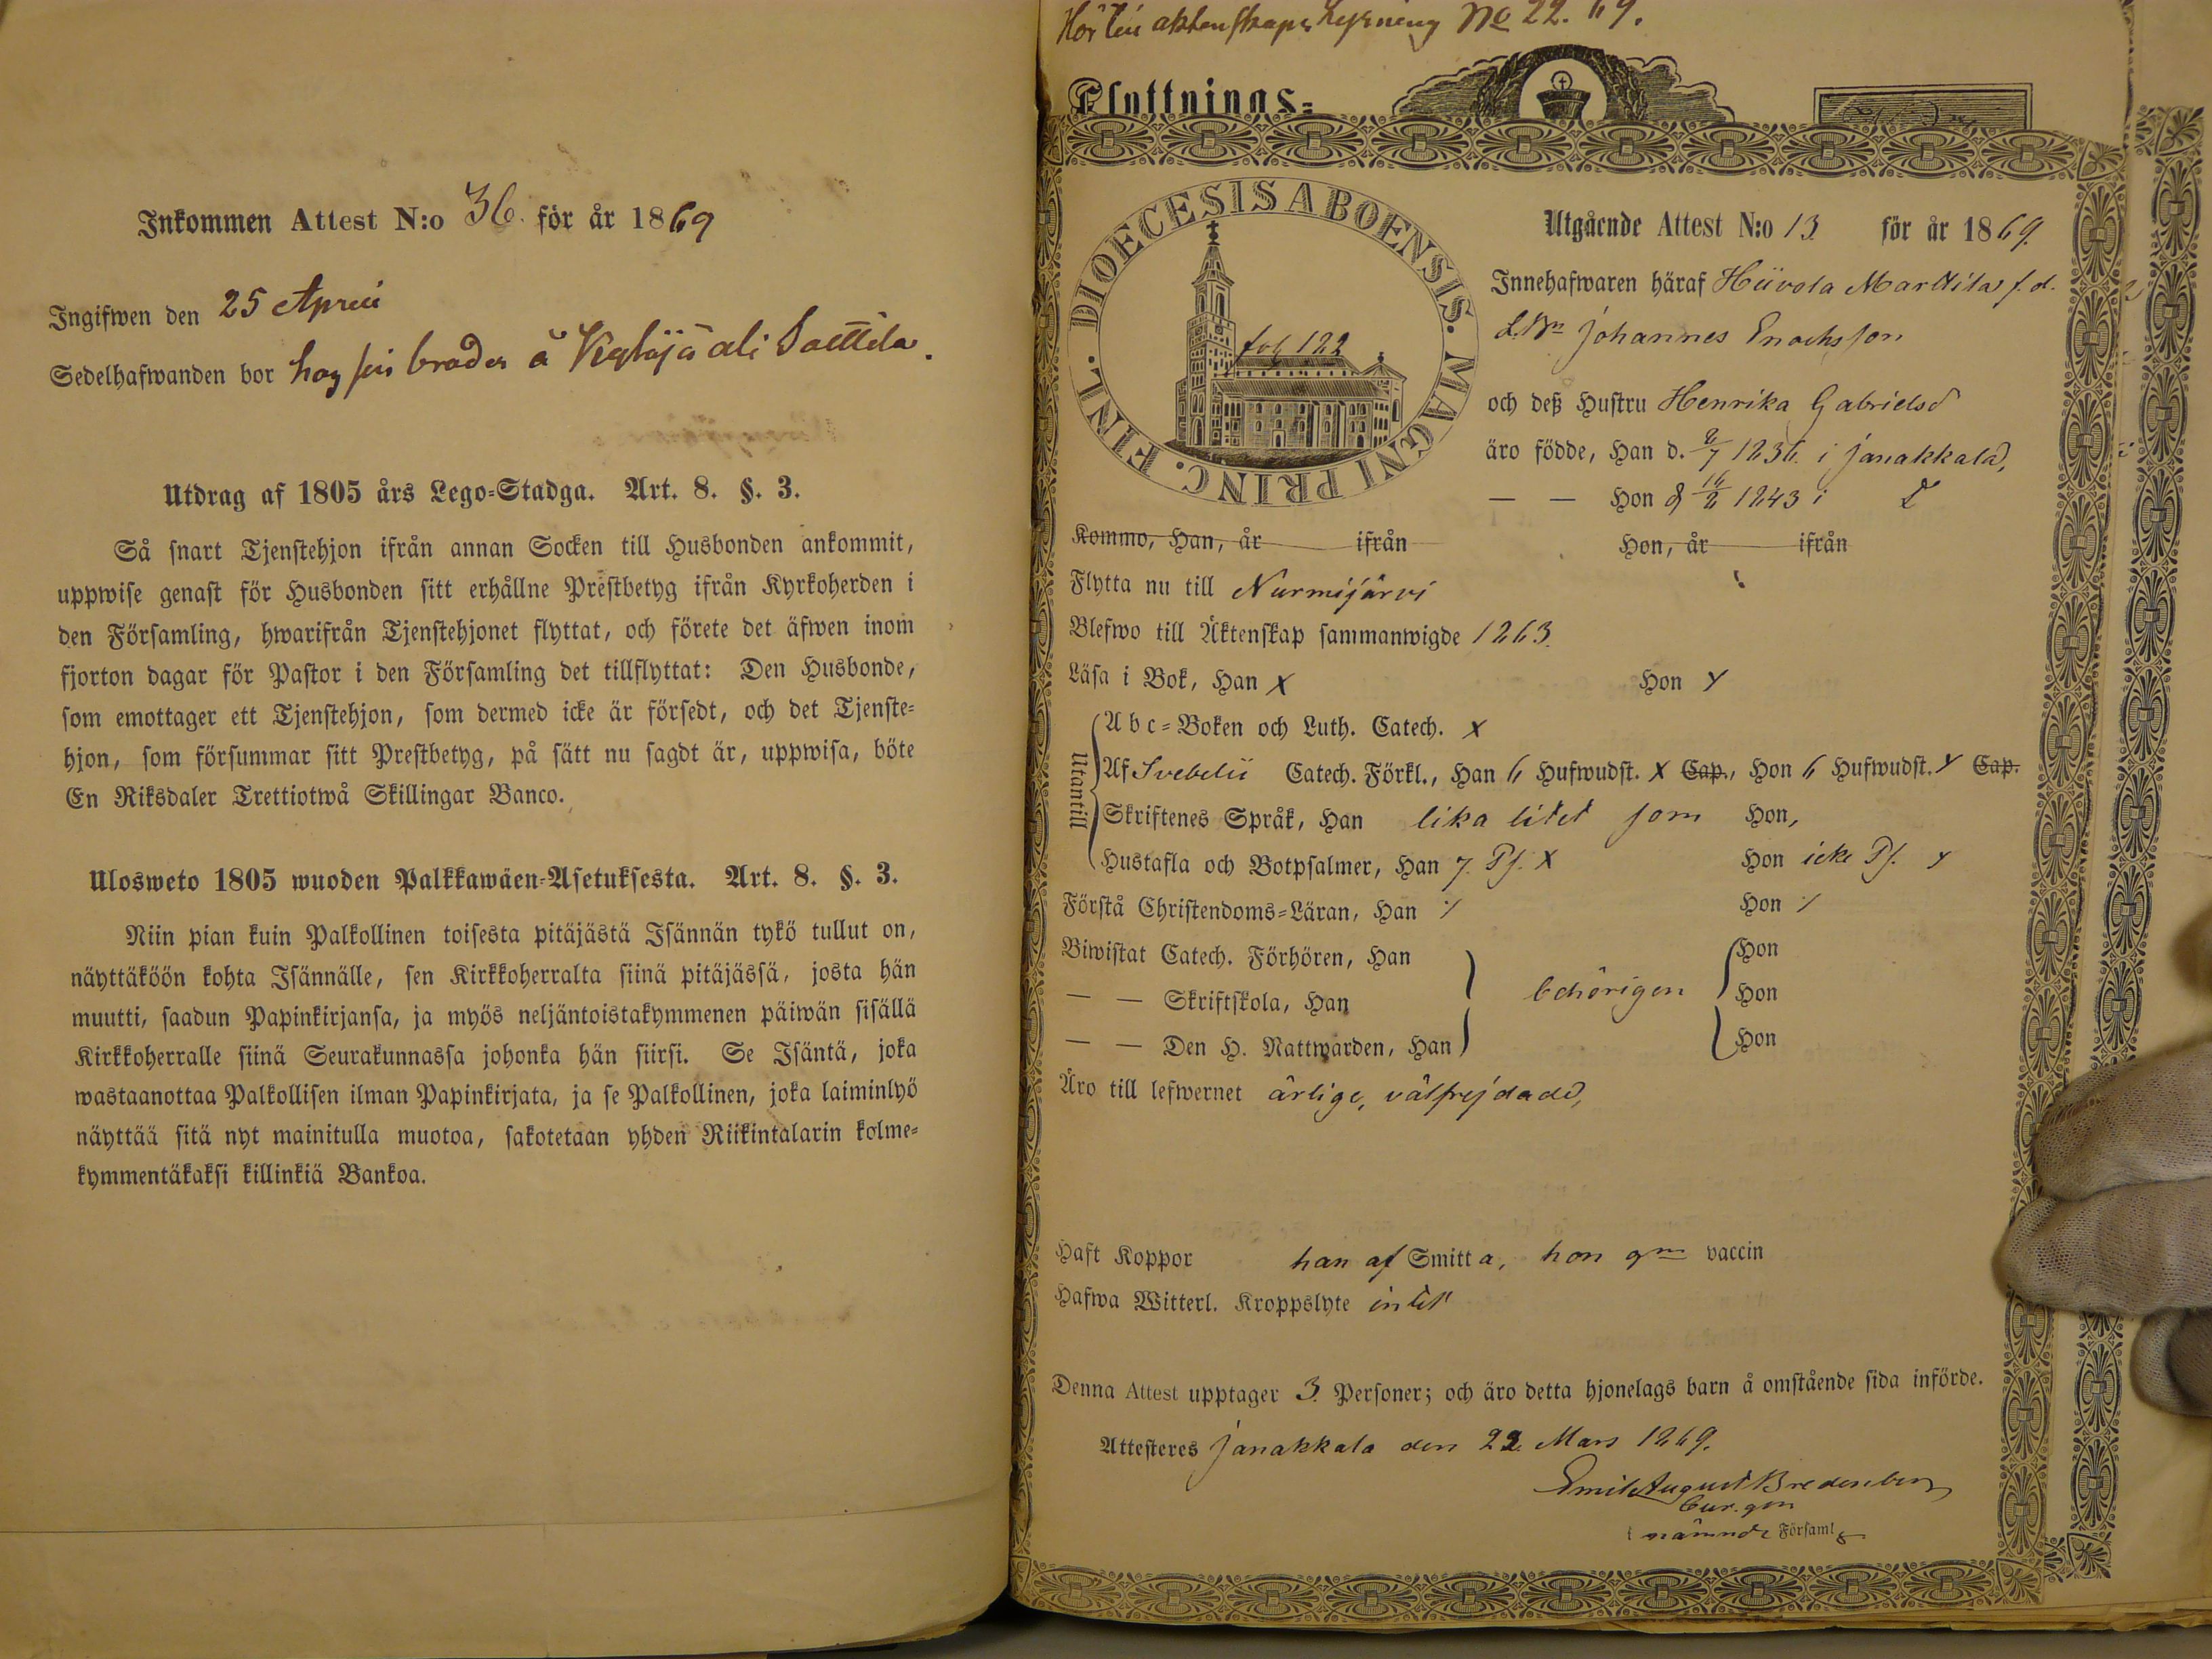 Inkommen Attest N:o 36. för år 1869
Ingifwen den 25 April
Sedelhafwanden bor hos sin broder å ali Sattila.
Utdrag af 1805 års Lego-Stadga. Art. 8. §. 3.
Så snart Tjenstehjon ifrån annan Socken till Husbonden ankommit,
uppwise genast för Husbonden sitt erhållne Prestbetyg ifrån Kyrkoherden i
den Församling, hwarifrån Tjenstehjonet flyttat, och förete det äfwen inom
fjorton dagar för Pastor i den Församling det tillflyttat: Den Husbonde,
som emottager ett Tjenstehjon, som dermed icke är försedt, och det Tjenste-
hjon, som försummar sitt Prestbetyg, på sätt nu sagdt är, uppwisa, böte
En Riksdaler Trettiotwå Skillingar Banco.
Ulosweto 1805 wuoden Palkkawäen-Asetuksesta. Art. 8. §. 3.
Niin pian kuin Palkollinen toisesta pitäjästä Isännän tykö tullut on,
näyttäköön kohta Isännälle, sen Kirkkoherralta siinä pitäjässä, josta hän
muutti, saadun Papinkirjansa, ja myös neljäntoistakymmenen päiwän sisällä
Kirkkoherralle siinä Seurakunnassa johonka hän siirsi. Se Isäntä, joka
wastaanottaa Palkollisen ilman Papinkirjata, ja se Palkollinen, joka laiminlyö
näyttää sitä nyt mainitulla muotoa, sakotetaan yhden Riikintalarin kolme-
kymmentäkaksi killinkiä Bankoa.
Hör till äktenskaps lysning No 22. 69.
Flyttnings-
DIOECESIS ABOENSIS. MAGNI PRINC. FINL.
fol 122
Utgående Attest N:o 13 för år 1869.
Innehafwaren häraf Hiivola Marttila f.d.
Johannes Enochsson
och deß Hustru Henrika Gabrielsd
äro födde, Han d. 2/7 1836. i Janakkala,
— — Hon d 16/2 1843 i D
Kommo, Han, år ifrån Hon, år ifrån
Flytta nu till Nurmijärvi
Blefwo till Äktenskap sammanwigde 1863.
Läsa i Bok, Han X Hon X
Utantill
Abc-Boken och Luth. Catech. X
Af Svebelii Catech. Förkl., Han 6 Hufwudst. X Cap., Hon 6 Hufwudst. X Cap.
Skriftenes Språk, Han lika litet som Hon,
Hustafla och Botpsalmer, Han 7. Ps. X Hon icke Ps. X
Förstå Christendoms-Läran, Han / Hon /
Biwistat Catech. Förhören, Han Hon
— — Skriftskola, Han behörigen Hon
— — Den H. Nattwarden, Han Hon
Äro till lefwernet ärlige, välfrejdade,
Haft Koppor han af Smitta, hon gm vaccin
Hafwa Witterl. Kroppslyte intet
Denna Attest upptager 3 Personer; och äro detta hjonelags barn å omstående sida införde.
Attesteres Janakkala den 22 Mars 1869.
Emil August Bredenberg
Cur. gen
i nämnde Församlg